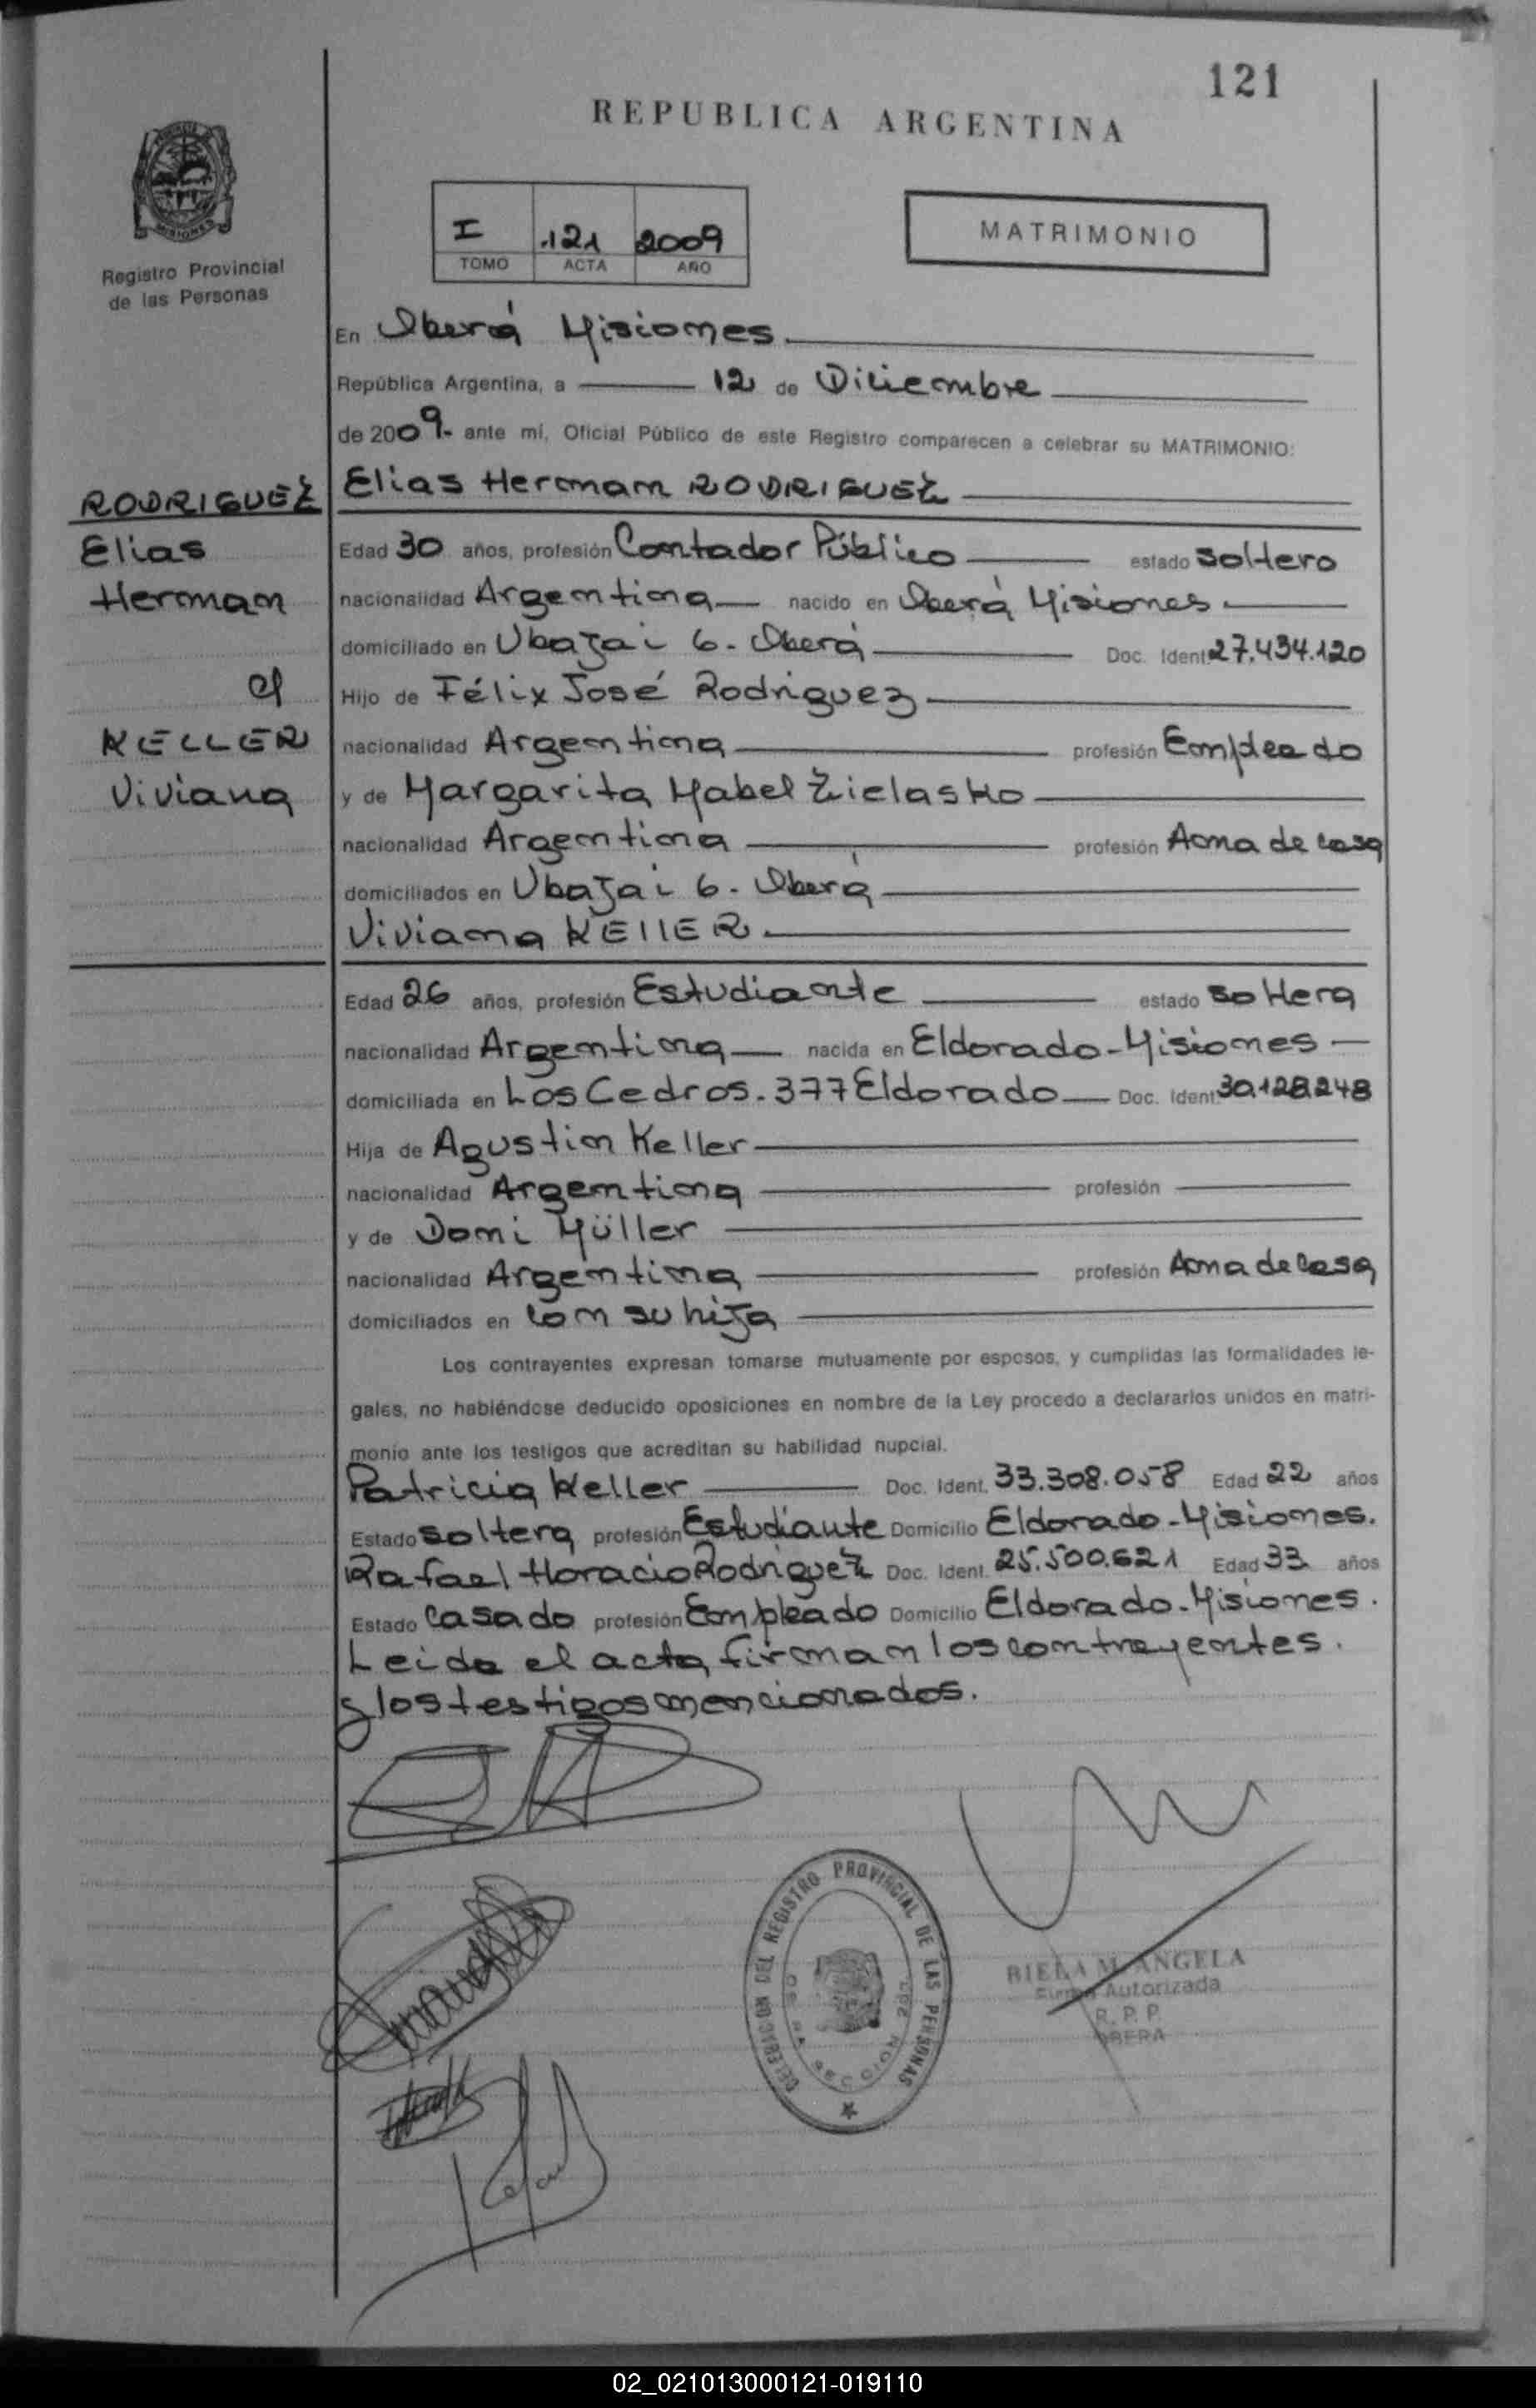 121
REPUBLICA ARGENTINA
MISIONES
Registro Provincial
de las Personas
I 121 2009
TOMO ACTA AÑO
MATRIMONIO
En Oberá Misiones
República Argentina, a 12 de Diciembre
de 2009- ante mí, Oficial Público de este Registro comparecen a celebrar su MATRIMONIO:
RODRIGUEZ
Elias
Hernan
c/
KELLER
Viviana
Elias Hernan RODRIGUEZ
Edad 30 años, profesión Contador Público estado soltero
nacionalidad Argentina nacido en Oberá Misiones
domiciliado en Ubajai 6. Oberá Doc. Ident. 27.434.120
Hijo de Félix José Rodriguez
nacionalidad Argentina profesión Empleado
y de Margarita Mabel Zielasko
nacionalidad Argentina profesión Ama de casa
domiciliados en Ubajai 6. Oberá
Viviana KEllER
Edad 26 años, profesión Estudiante estado soltera
nacionalidad Argentina nacida en Eldorado-Misiones
domiciliada en Los Cedros. 377 Eldorado Doc. Ident. 30.128.248
Hija de Agustin Keller
nacionalidad Argentina profesión
y de Doni Müller
nacionalidad Argentina profesión Ama de Casa
domiciliados en con su hija
Los contrayentes expresan tomarse mutuamente por esposos, y cumplidas las formalidades le-
gales, no habiéndose deducido oposiciones en nombre de la Ley procedo a declararlos unidos en matri-
monio ante los testigos que acreditan su habilidad nupcial.
Patricia Keller Doc. Ident. 33.308.058 Edad 22 años
Estado soltera profesión Estudiante Domicilio Eldorado-Misiones.
Rafael Horacio Rodriguez Doc. Ident. 25.500.621 Edad 33 años
Estado casado profesión Empleado Domicilio Eldorado-Misiones.
Leida el acta, firman los contrayentes.
y los testigos mencionados.
DELEGACION DEL REGISTRO PROVINCIAL DE LAS PERSONAS
BIELA M. ANGELA
Firma Autorizada
R. P. P.
OBERA
02_021013000121-019110